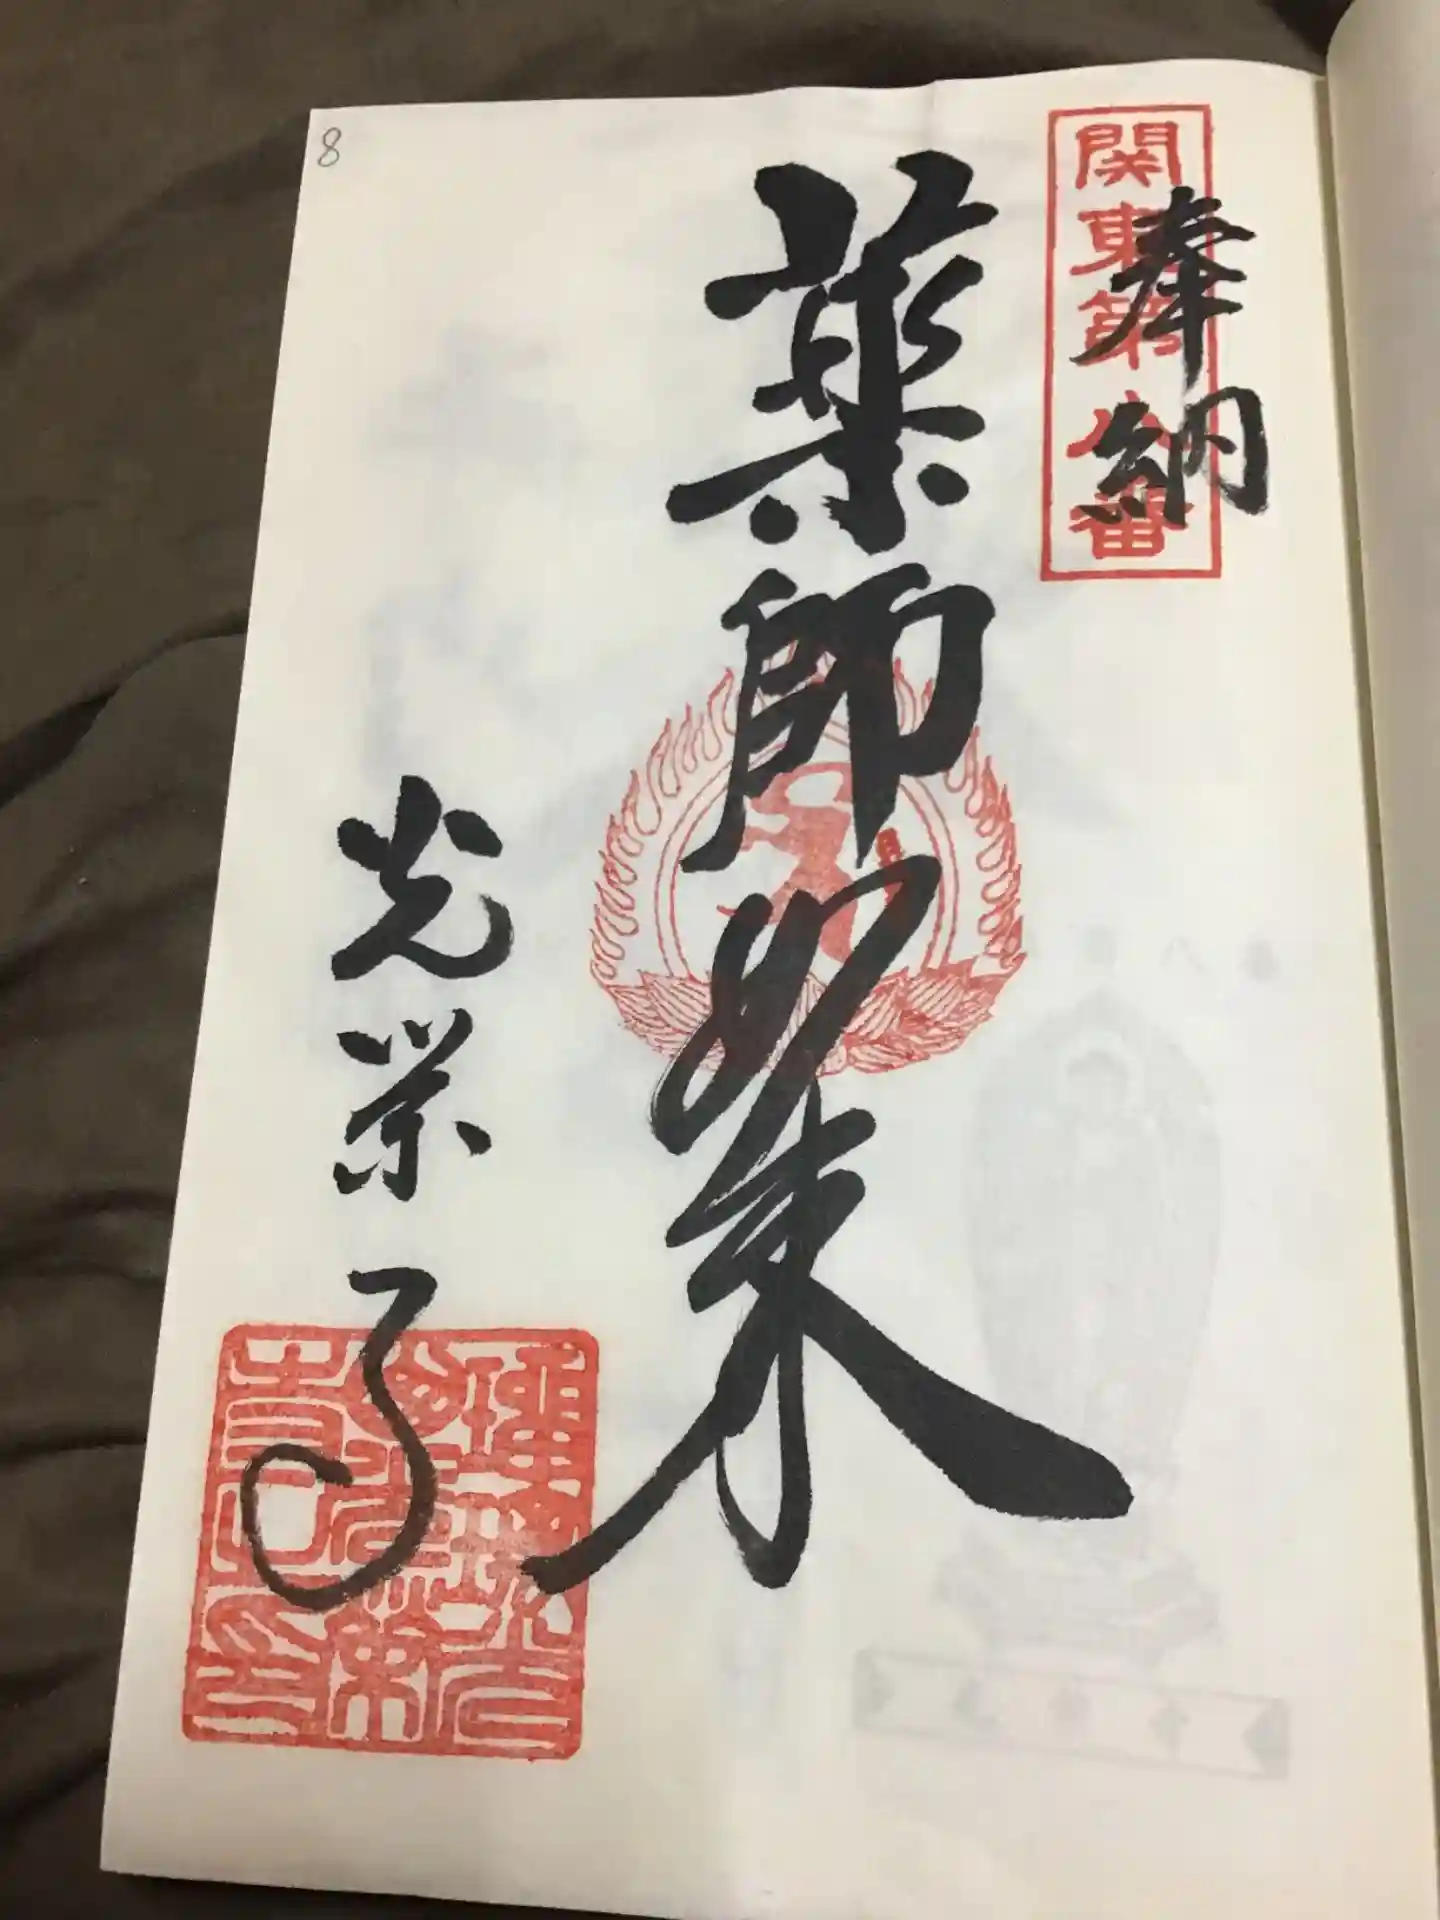 8
関東第八番
奉納
薬師如来
光栄寺